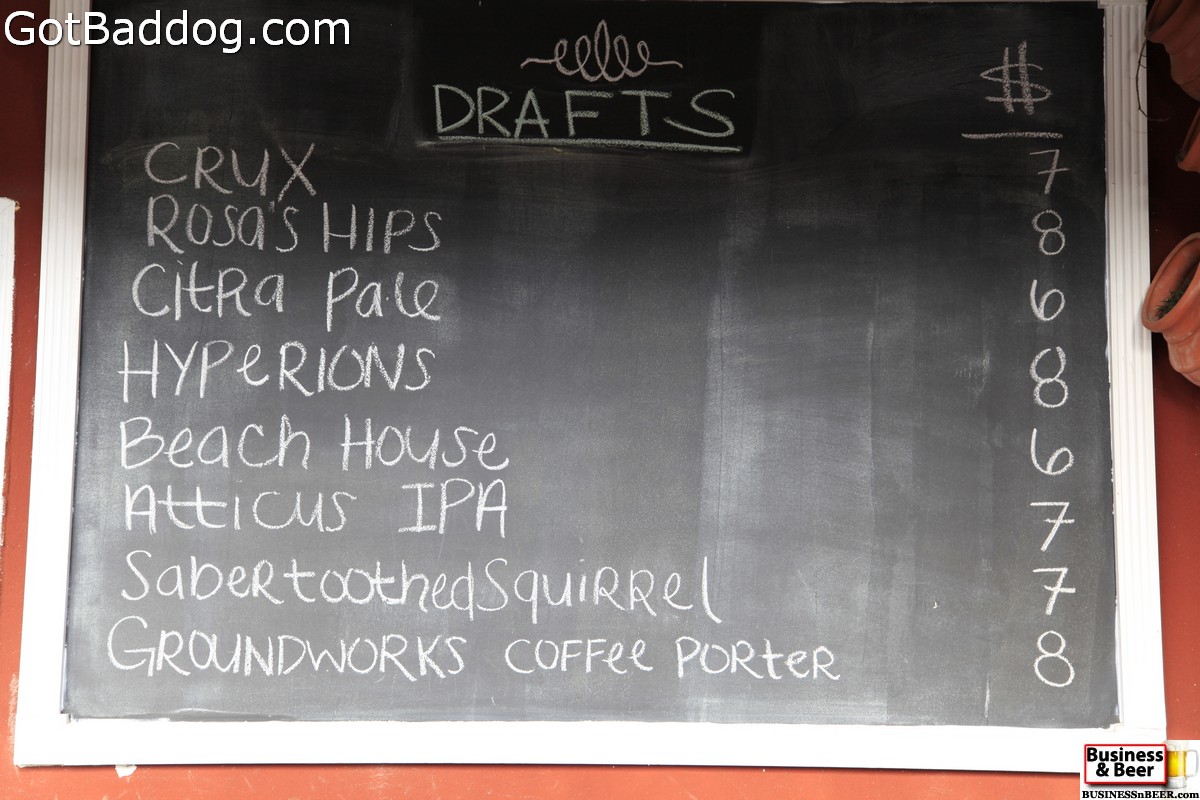 GotBaddog.com
DRAFTS $
CRUX 7
Rosa's HIPS 8
Citra Pale 6
HYPeRIONS 8
Beach House 6
Atticus IPA 7
SabertoothedSquirrel 7
GROUNDWORKS COFFee PORteR 8
Business
& Beer
BUSINESSnBEER.com